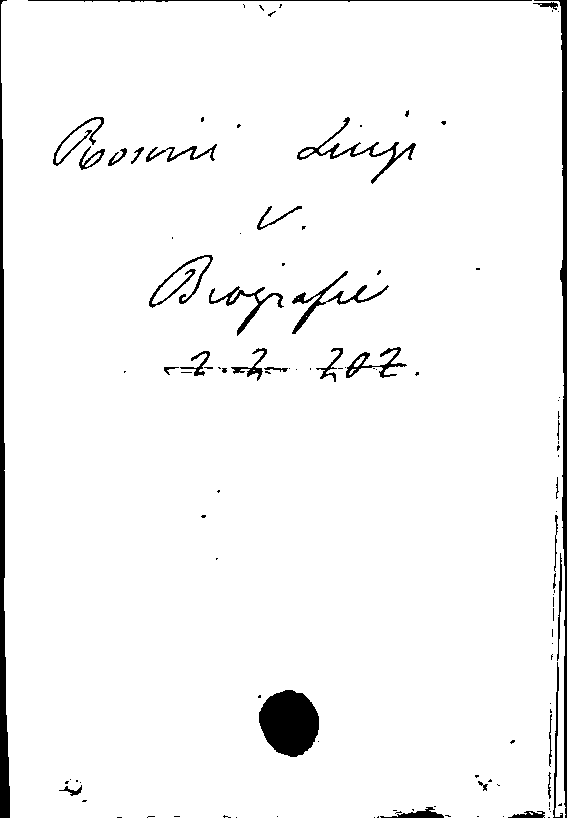 Rosini Luigi
V.
Biografie
2.2 202.